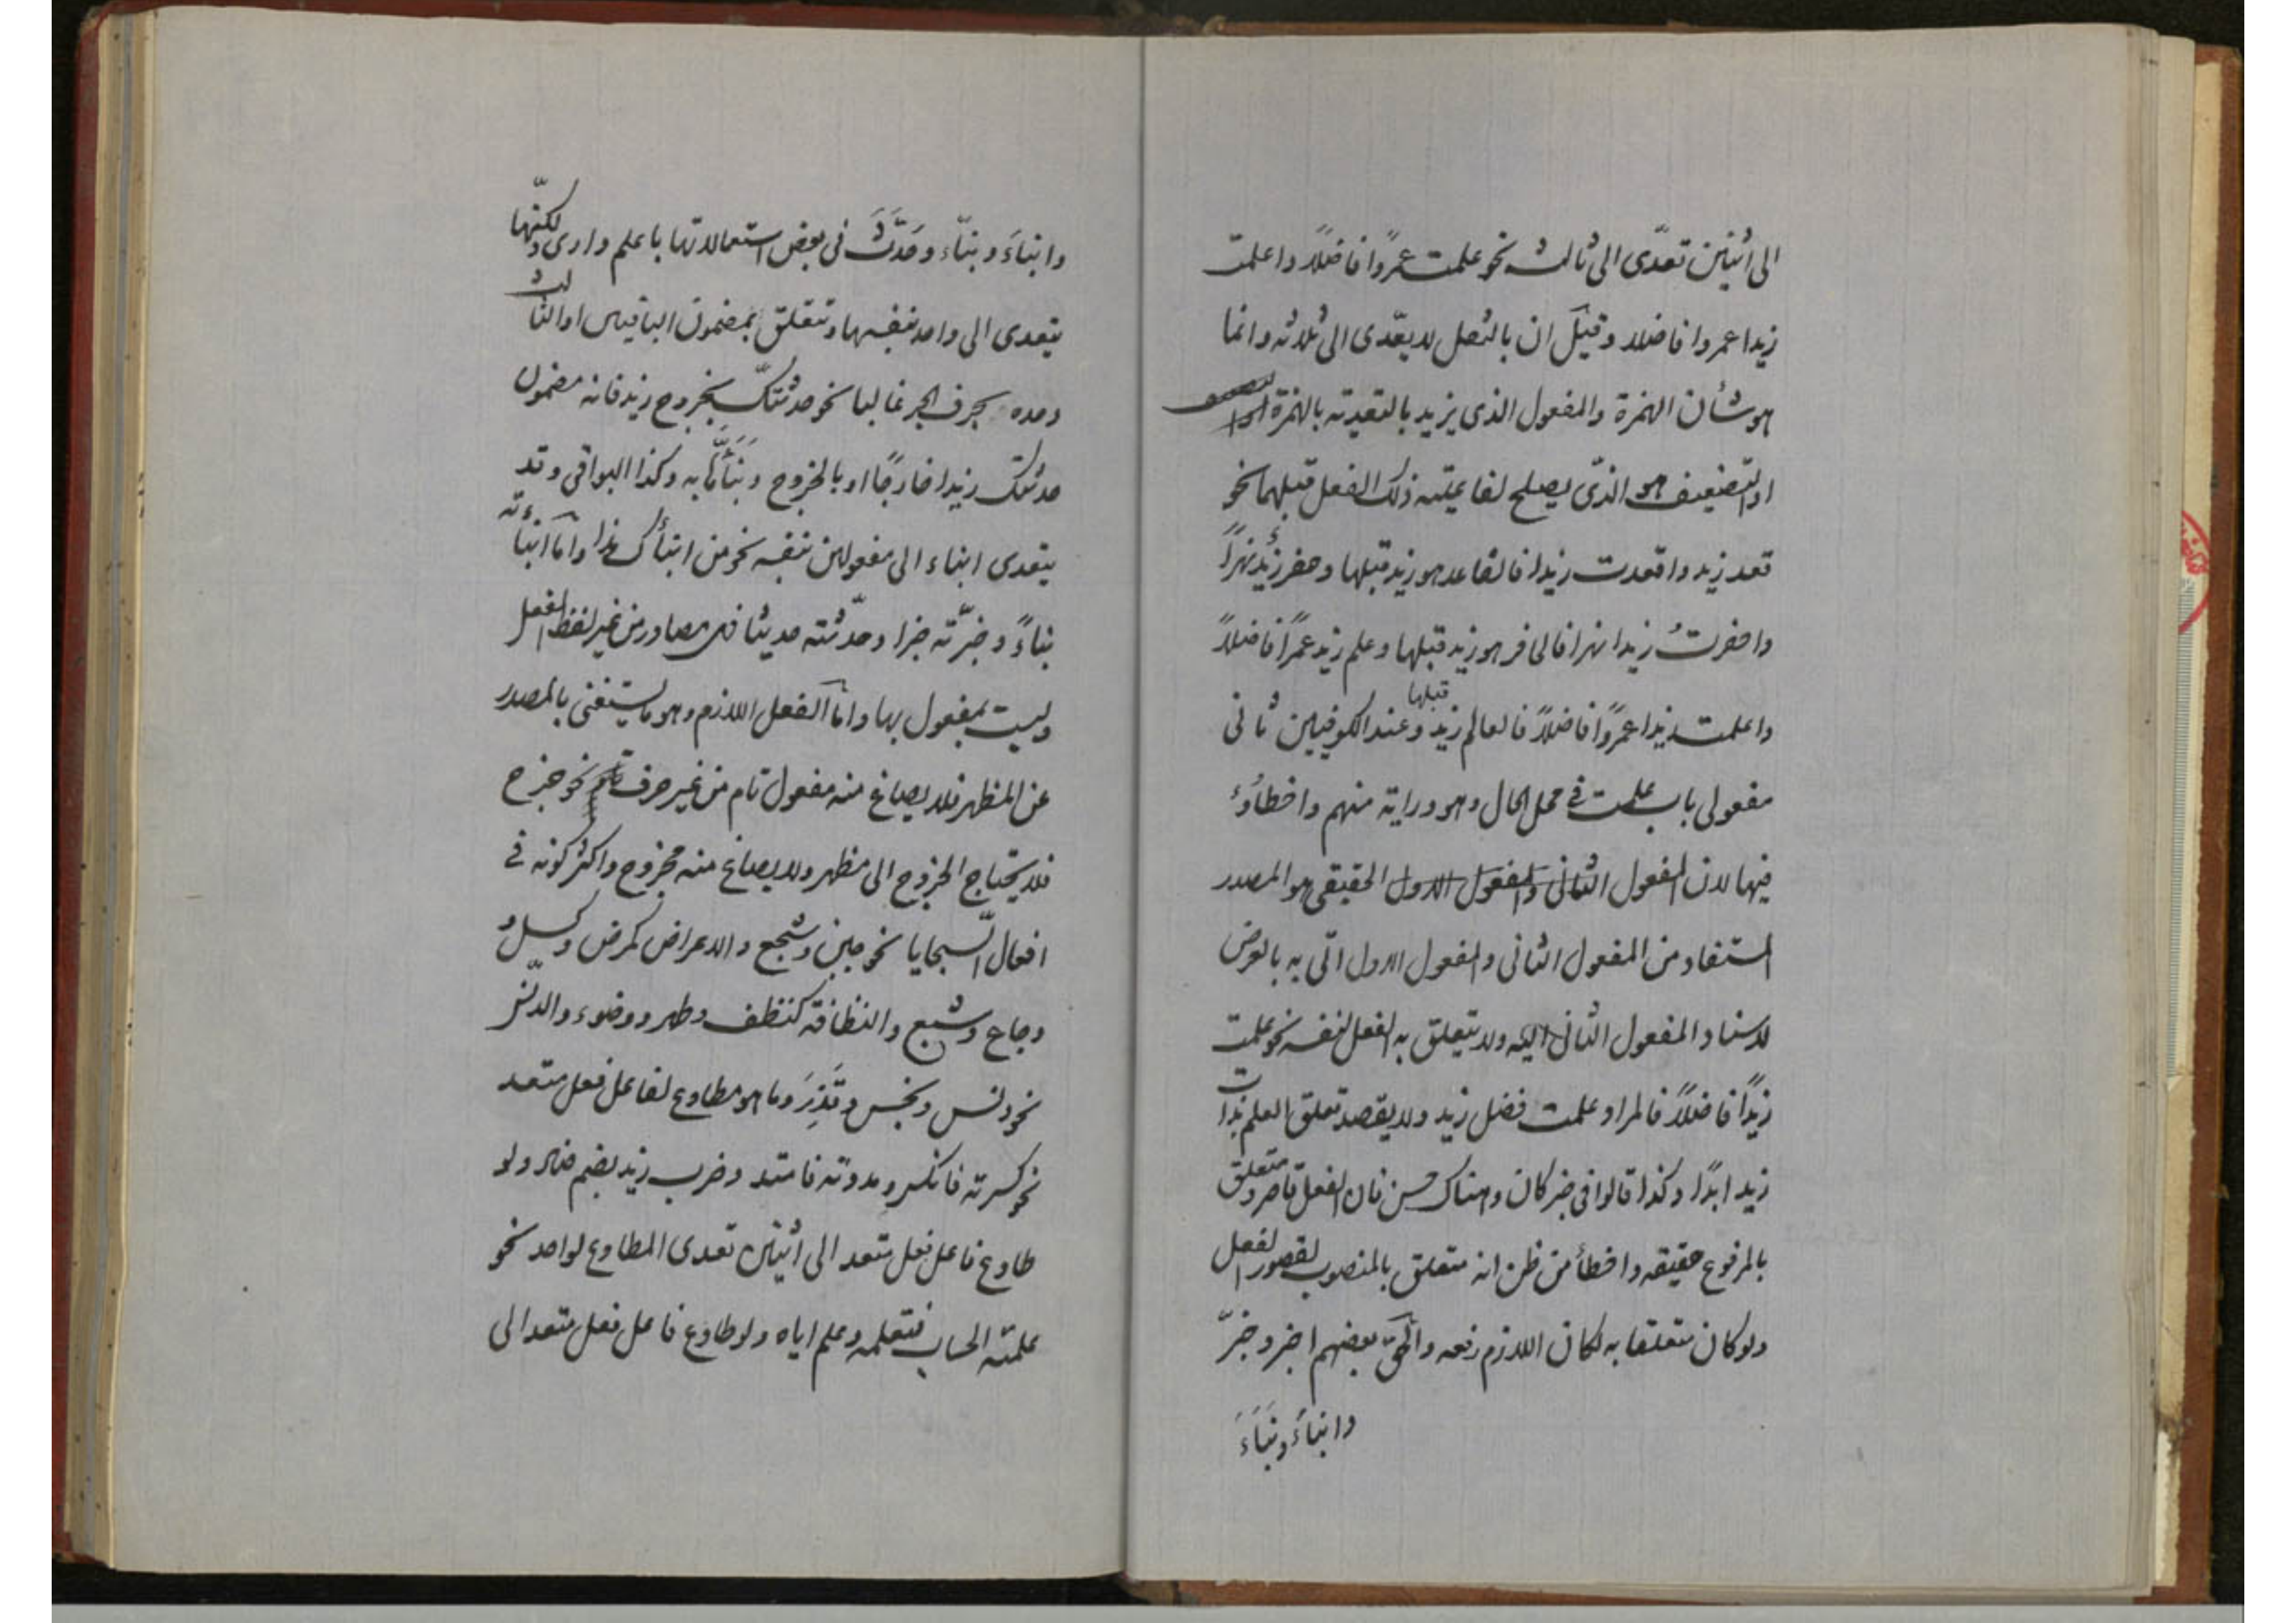 الى اثنين تعدّى الى ثالث نحو علمت عمروًا فاضلًا واعلمت
زيدا عمروا فاضلا وقيل ان بالنقل لا يتعدى الى ثلاثه وانما
هو شأن الهمزة والمفعول الذى يزيد بالتعدية بالهمزة
او التضعيف هو الذى يصلح لفاعلية ذلك الفعل قبلهما نحو
قعد زيد واقعدت زيدا فالقاعد هو زيد قبلها وحفر زيد نهرًا
واحفرتُ زيدا نهرا فالحافر هو زيد قبلها وعلم زيد عمرًا فاضلًا
واعلمت زيدا عمروًا فاضلًا فالعالم زيد قبلها وعند الكوفيين ثانى
مفعولى باب علمت فى محل الحال وهو دراية منهم واخطأوء
فيها لان المفعول الثانى والمفعول الاول الحقيقى هو المصدر
المستفاد من المفعول الثانى والمفعول الاول اتى به بالعرض
لاسناد المفعول الثانى اليه ولا يتعلق به الفعل لنفسه نحو علمت
زيدًا فاضلًا فالمراد علمت فضل زيد ولا يقصد تعلق العلم بذات
زيد ابدًا وكذا قالوا فى خبر كان وهناك حسن فان الفعل قاصر ومتعلق
بالمرفوع حقيقه واخطأ من ظن انه متعلق بالمنصوب لقصور الفعل
ولو كان متعلقا به لكان اللازم رفعه والحق بعضهم اخبر وخبّر
وانباءَ ونبَاءَ
وانباءَ ونبّاء وحَدَّثَ فى بعض استعمالاتها باعلم وارى ولكنّها
يتعدى الى واحد بنفسها وتتعلق بمضمون الباقيين او الثالث
وحده بحرف الجر غالبا نحو حدثتك بخروج زيد فانه مضمون
حدثتك زيدا خارجًا او بالخروج ونَبَّأَ به وكذا البواقى وقد
يتعدى انباء الى مفعولين بنفسه نحو من انبأك هذا واما انبأته
نباءً وخبّرته خبرا وحدّثته حديثا فهى مصادر من غير لفظ الفعل
وليست بمفعول بها واما الفعل اللازم وهو ما يستغنى بالمصدر
عن المظهر فلا يصاغ منه مفعول تام من غير حرف نحو خرج
فلا يحتاج الخروج الى مظهر ولا يصاغ منه مخروج واكثر كونه فى
افعال السّجايا نحو جبن وشجع والاعراض كمرض وكسل و
وجاع وشبع والنظافة كنظف وطهر ووضوء والدنس
نحو دنس ونجس وقَذِرَ وما هو مطاوع لفاعل فعل متعد
نحو كسرته فانكسر ومددته فامتد وضرب زيد بضم ضاد ولو
طاوع فاعل فعل متعد الى اثنين تعدى المطاوع لواحد نحو
علمته الحساب فتعلمه وعلم اياه ولو طاوع فاعل فعل متعد الى